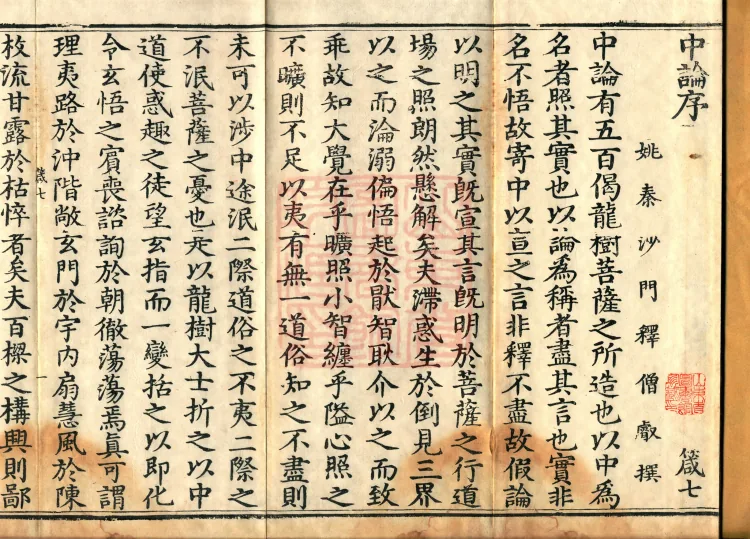 中論序
姚秦沙門釋僧叡撰 箴七
中論有五百偈龍樹菩薩之所造也以中爲
名者照其實也以論爲稱者盡其言也實非
名不悟故寄中以宣之言非釋不盡故假論
以明之其實既宣其言既明於菩薩之行道
場之照朗然懸解矣夫滯惑生於倒見三界
以之而淪溺偏悟起於猒智耿介以之而致
乖故知大覺在乎曠照小智纏乎隘心照之
不曠則不足以夷有無一道俗知之不盡則
未可以涉中途泯二際道俗之不夷二際之
不泯菩薩之憂也是以龍樹大士折之以中
道使惑趣之徒望玄指而一變括之以即化
令玄悟之賓喪諮詢於朝徹蕩蕩焉眞可謂
理夷路於沖階敞玄門於宇内扇慧風於陳
箴七
枚流甘露於枯悴者矣夫百樑之構興則鄙